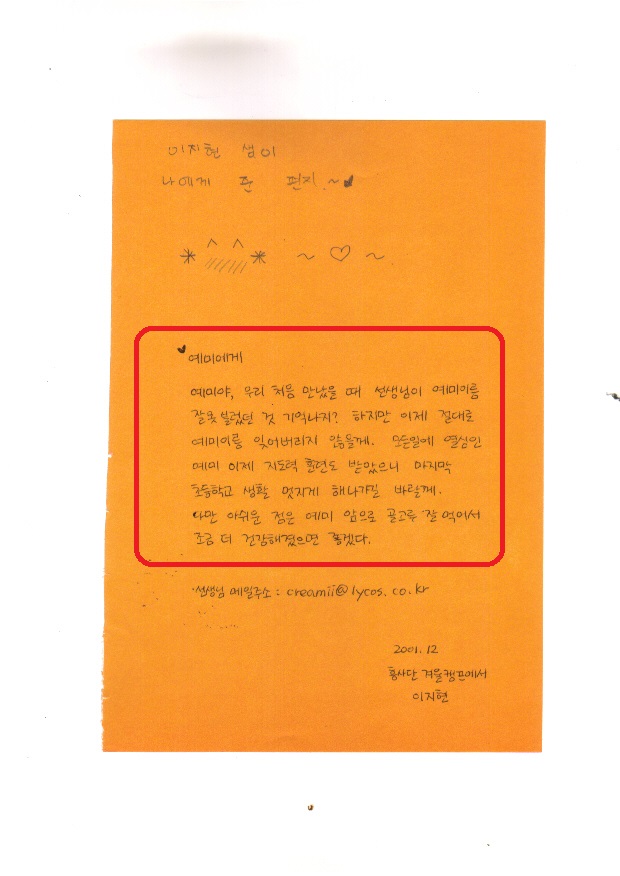 이지현 샘이
나에게 준 편지.~♥
*^^* ~♡~.
♥예미에게
예미야, 우리 처음 만났을 때 선생님이 예미이름
잘못 불렀던 것 기억나지? 하지만 이제 절대로
예미이름 잊어버리지 않을게. 모든일에 열심인
예미 이제 지도력 훈련도 받았으니 마지막
초등학교 생활 멋지게 해나가길 바랄께.
다만 아쉬운 점은 예미 앞으로 골고루 잘 먹어서
조금 더 건강해졌으면 좋겠다.
선생님 메일주소 : creamii@lycos.co.kr
2001.12
흥사단 겨울캠프에서
이지현